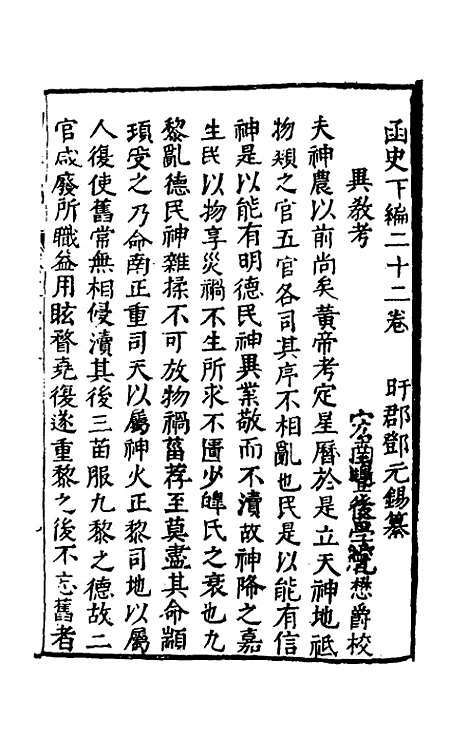 函史下編二十二卷　盱郡鄧元錫纂
異教考　南豐後學　懋爵校
夫神農以前尚矣黃帝考定星曆於是立天神地祇
物類之官五官各司其序不相亂也民是以能有信
神是以能有明德民神異業敬而不瀆故神降之嘉
生民以物享災禍不生所求不匱少皥氏之衰也九
黎亂德民神雜揉不可放物禍菑荐至莫盡其命顓
頊受之乃命南正重司天以屬神火正黎司地以屬
人復使舊常無相侵瀆其後三苗服九黎之德故二
官咸廢所職益用眩瞀堯復遂重黎之後不忘舊者